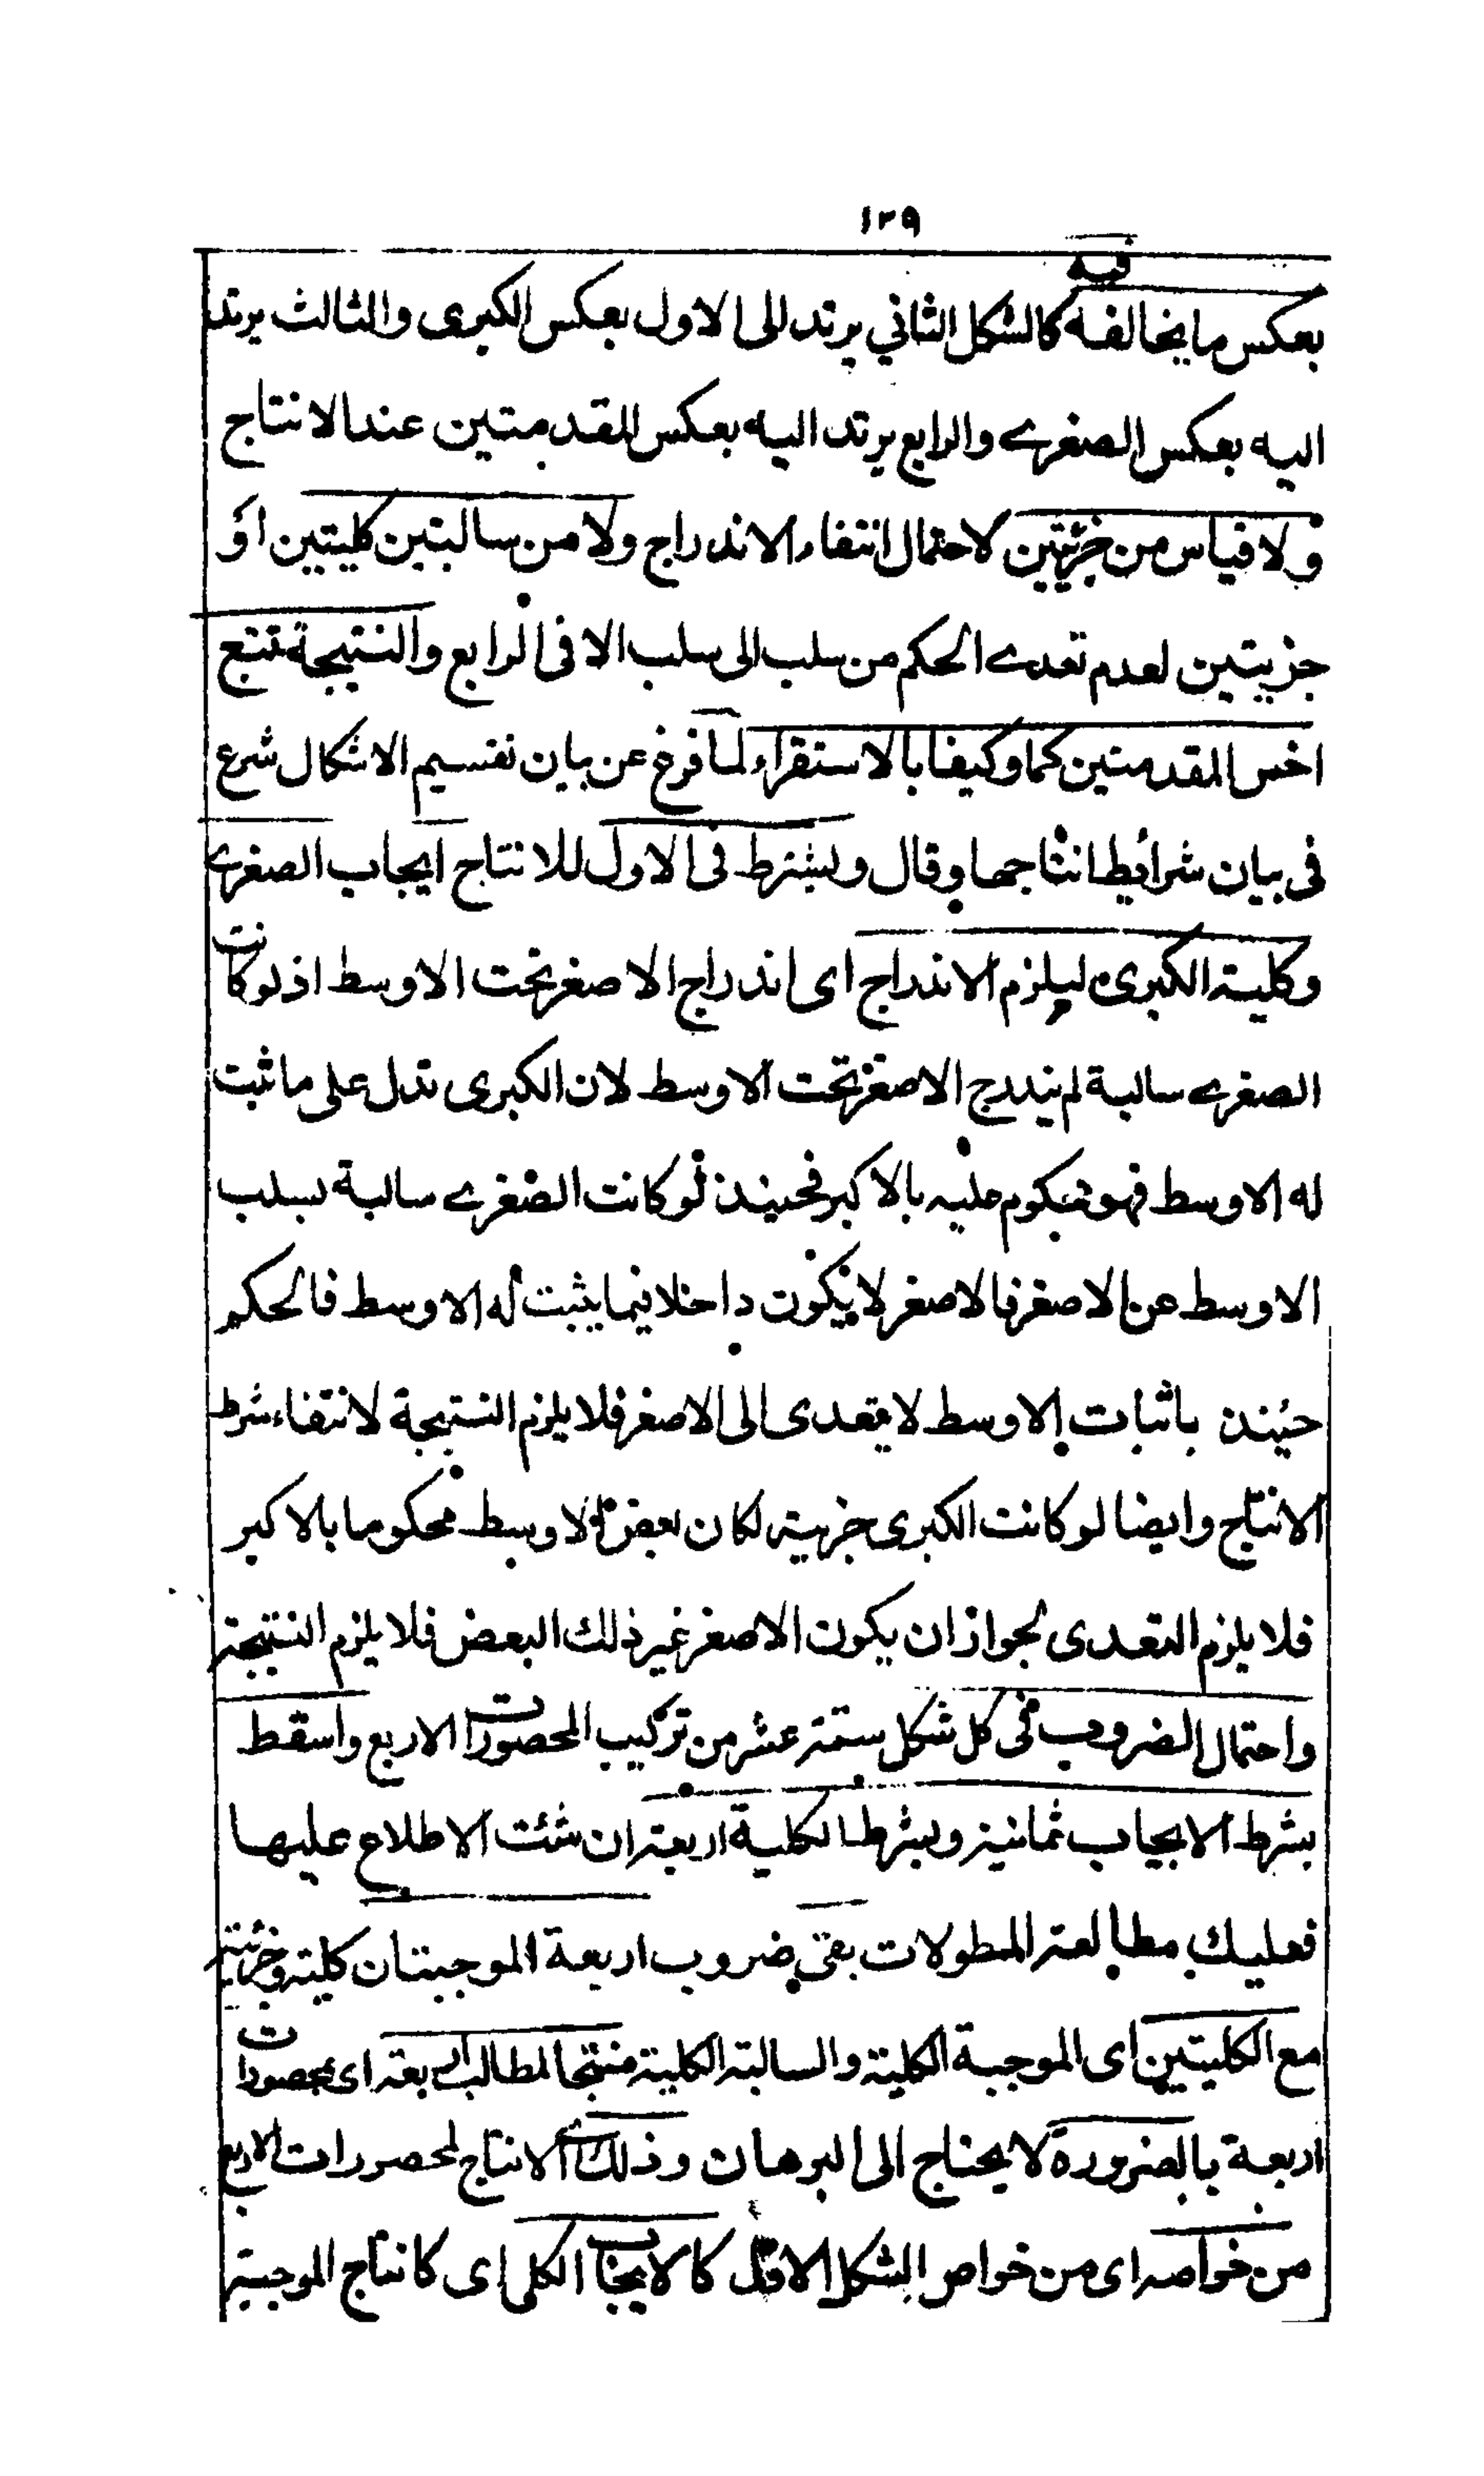 ١٣٩
بعكس ما يخالفه فيه كالشكل الثاني يرتد الى الاول بعكس الكبرى والثالث يرتد
اليه بعكس الصغرے والرابع يرتد اليه بعكس المقدمتين عند الانتاج
ولا قياس من جزئيتين لاحتمال انتفاء الاندراج ولا من سالبتين كليتين او
جزيتين لعدم تعدے الحكم من سلب الى سلب الا فى الرابع والنتيجة تتبع
اخس المقدمتين كما وكيفا بالاستقراء لما فرغ عن بيان تقسيم الاشكال شرع
فى بيان شرائط انتاجها وقال ويشترط فى الاول للانتاج ايجاب الصغرے
وكلية الكبرى ليلزم الاندراج اى اندراج الاصغر تحت الاوسط اذ لو كانت
الصغرے سالبة لم يندرج الاصغر تحت الاوسط لان الكبرى تدل على ما ثبت
له الاوسط فهو محكوم عليه بالاكبر فحينئذ لو كانت الصغرے سالبة بسلب
الاوسط عن الاصغر فالاصغر لا يكون داخلا فيما يثبت له الاوسط فالحكم
حيئذ باثبات الاوسط لا يتعدى الى الاصغر فلا يلزم النتيجة لانتفاء شرط
الانتاج وايضا لو كانت الكبرى جزيية لكان بعض الاوسط محكوما بالاكبر
فلا يلزم التعدى لجواز ان يكون الاصغر غير ذلك البعض فلا يلزم النتيجة
واحتمال الضروب فى كل شكل ستة عشر من تركيب المحصورات الاربع واسقط
بشرط الايجاب ثمانية وبشرط الكلية اربعة ان شئت الاطلاع عليها
فعليك مطالعة المطولات بقى ضروب اربعة الموجبتان كلية وجزئية
مع الكليتين اى الموجبة الكلية والسالبة الكلية منتجا لمطالب اربعة اى محصورات
اربعة بالضرورة لا يحتاج الى البرهان وذلك اى الانتاج لمحصورات الاربع
من خواصه اى من خواص الشكل الاول كالايجاب الكلى اى كانتاج الموجبة